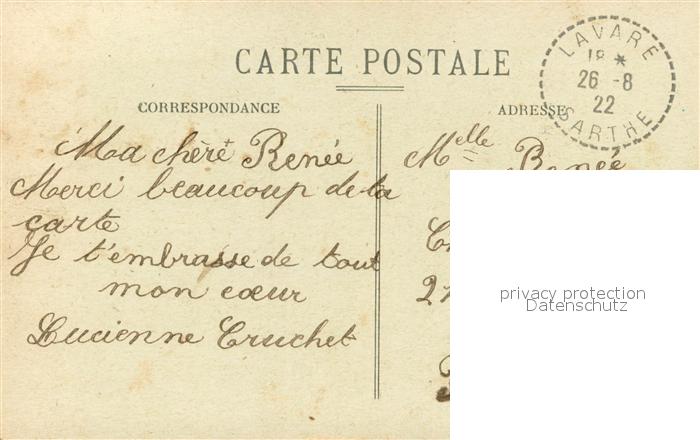 CARTE POSTALE
LAVARÉ
18 *
26 -8
22
SARTHE
CORRESPONDANCE
ADRESSE
Ma chère Renée
Merci beaucoup de ta
carte
Je t'embrasse de tout
mon cœur
Lucienne Cruchet
Melle Renée
privacy protection
Datenschutz